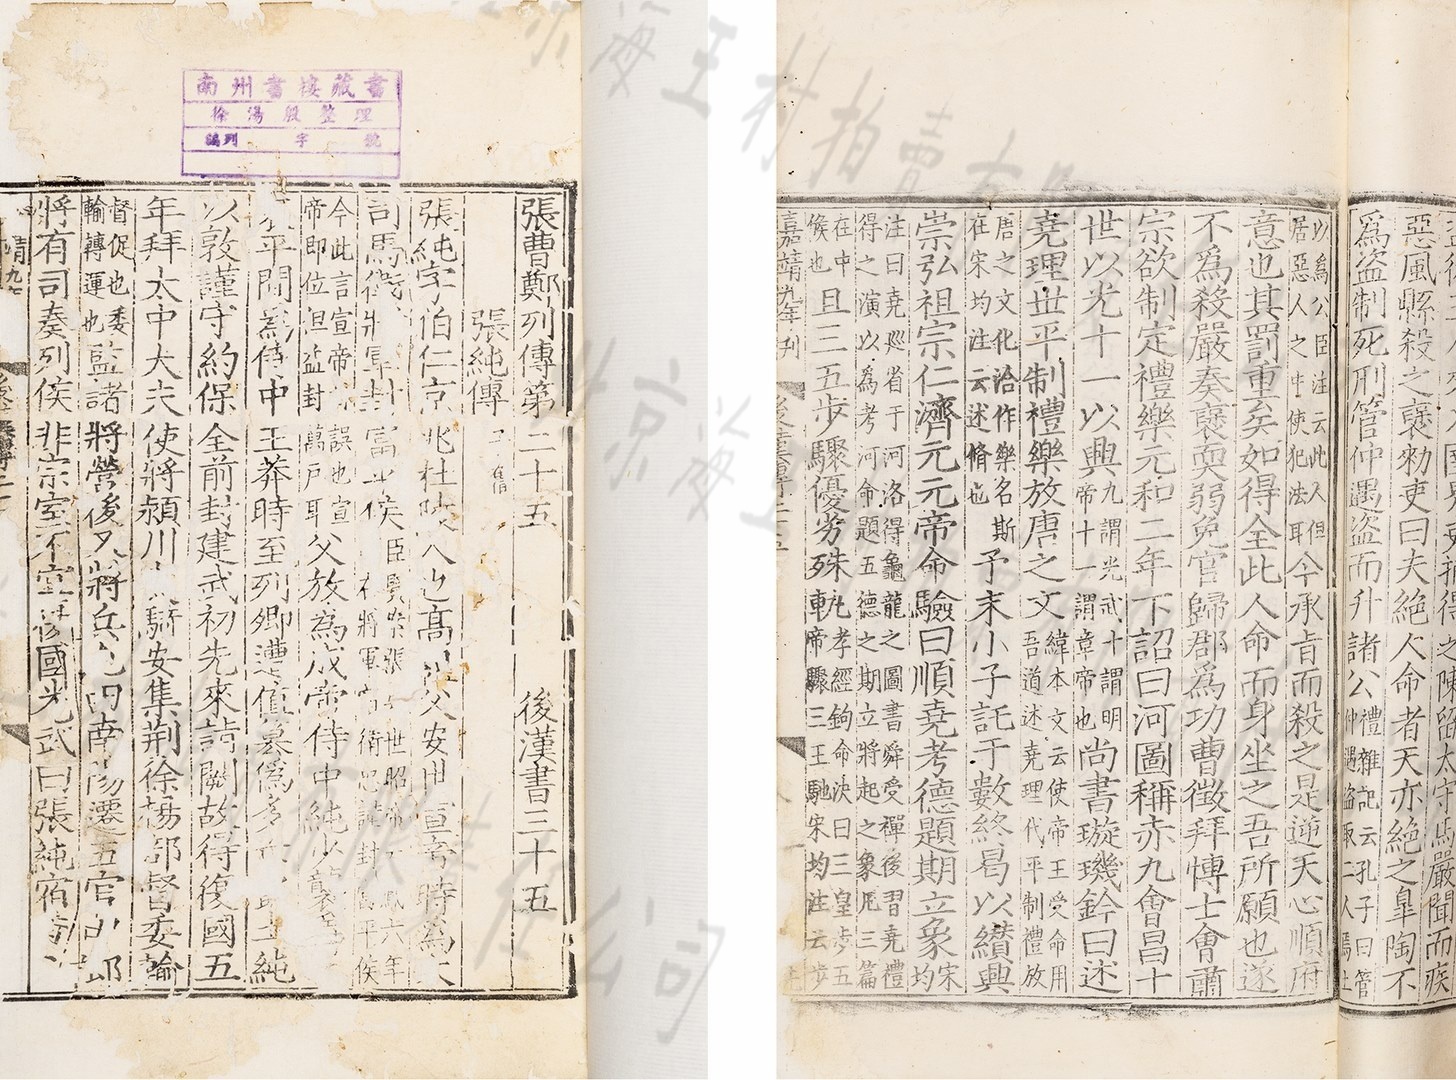 南州書樓藏書
徐湯殷整理
編列 字 號
張曹鄭列傳第二十五 後漢書三十五
張純傳 子奮
張純字伯仁京兆杜陵人也高祖父安世宣帝時為大
司馬衛將軍封富平侯 臣賢案張安世昭帝元鳳六年
右將軍宿衛忠謹封富平侯
今此言宣帝封誤也宣
帝即位但益封萬戶耳 父放為成帝侍中純少襲
哀平間為侍中王莽時至列卿遭值篡偽多 土純
以敦謹守約保全前封建武初先來詣闕故得復國五
年拜太中大夫使將潁川 騎安集荊徐揚部督委輸
督促也委
輸轉運也 監諸將營後又將兵屯田南陽遷五官中郎
將有司奏列侯非宗室不宜復國光武曰張純宿衛十
靖九
之陳留太守馬嚴聞而疾
惡風縣殺之襃勑吏曰夫絕人命者天亦絕之皐陶不
爲盜制死刑管仲遇盜而升諸公 禮雜記云孔子曰管
仲遇盜取二人焉上
以爲公臣注云此人但
居惡人之中使犯法耳 今承旨而殺之是逆天心順府
意也其罰重矣如得全此人命而身坐之吾所願也遂
不爲殺嚴奏襃耎弱免官歸郡爲功曹徵拜博士會肅
宗欲制定禮樂元和二年下詔曰河圖稱赤九會昌十
世以光十一以興 九謂光武十謂明
帝十一謂章帝也 尚書璇璣鈐曰述
堯理世平制禮樂放唐之文 緯本文云使帝王受命用
吾道述堯理代平制禮放
唐之文化洽作樂名斯
在宋均注云述脩也 予末小子託于數終曷以纘興
崇弘祖宗仁濟元元帝命驗曰順堯考德題期立象 宋均
注曰堯巡省于河洛得龜龍之圖書舜受禪後習堯禮
得之演以爲考河命題五德之期立將起之象凡三篇
在中
候也 且三五步驟優劣殊軌 孝經鉤命決曰三皇步五
帝驟三王馳宋均注云步
嘉靖九年刊
京海王村拍賣有限責任公司